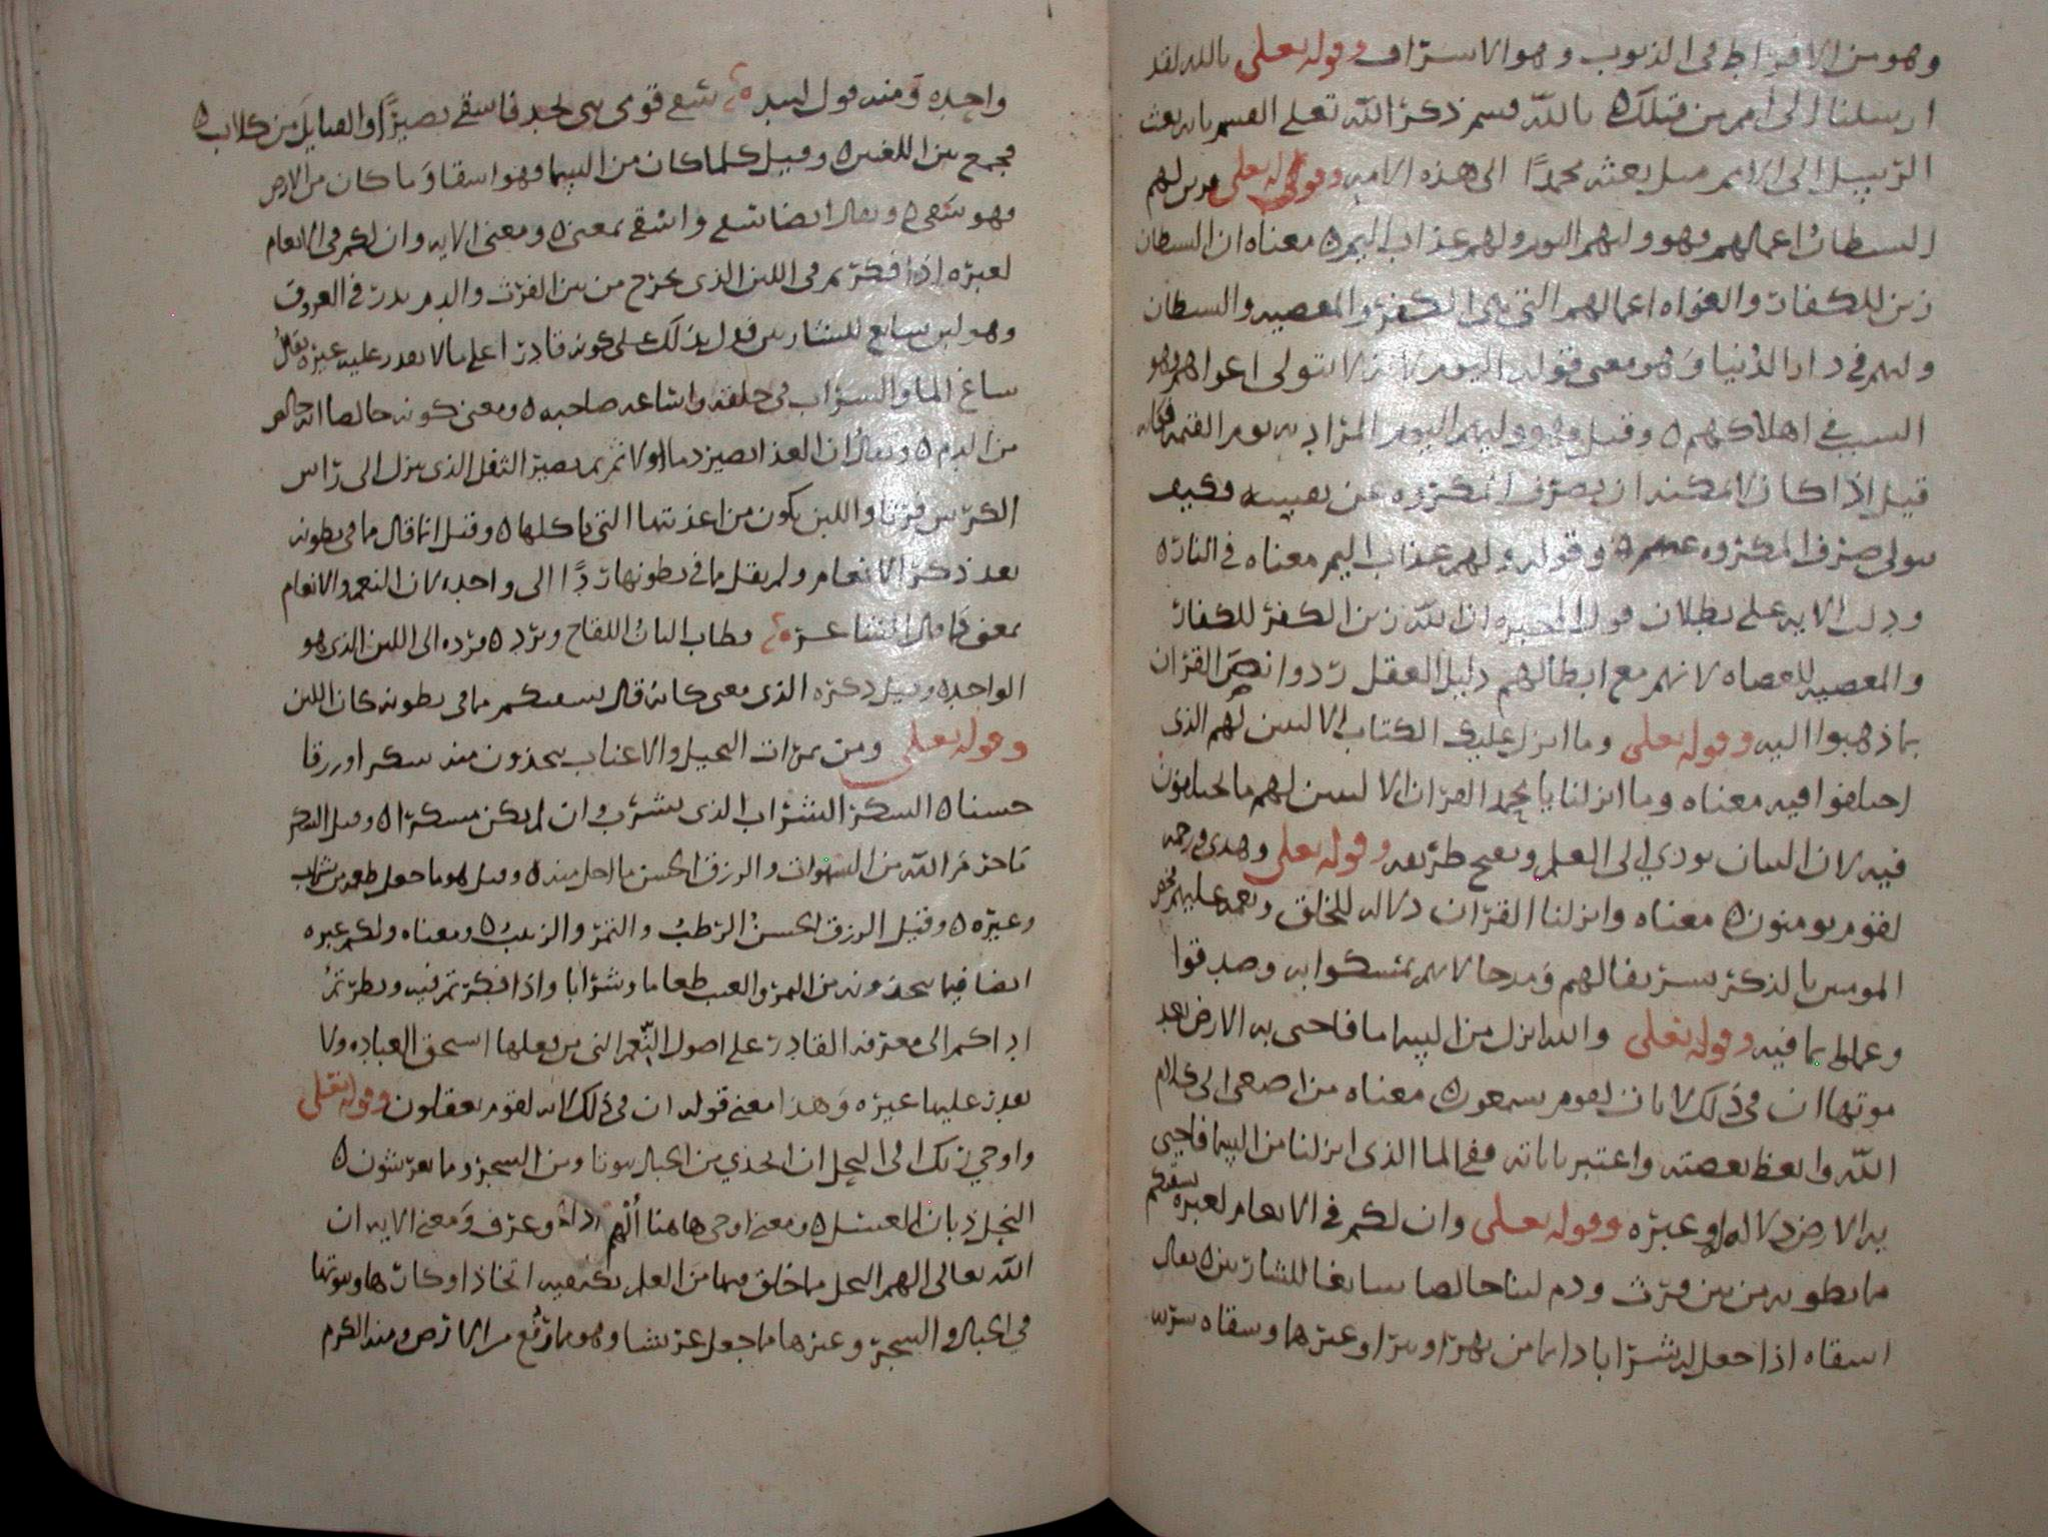 وهو من الافراط في الذنوب وهو الاسراف وقوله تعلى تالله لقد
ارسلنا الى امم من قبلك ه تالله قسم ذكر الله تعلى القسم بانه بعث
الرسل الى الامم قبل بعثه محمدًا الى هذه الامه وقوله تعلى فزين لهم
الشيطان اعمالهم فهو وليهم اليوم ولهم عذاب اليم ه معناه ان الشيطان
زين للكفار والغواه اعمالهم التي هي الكفر والمعصيه والشيطان
وليهم في دار الدنيا وهو معنى قوله اليوم لانه لا يتولى اغواهم وهو
السبب في اهلاكهم ه وقيل وهو وليهم اليوم المراد به يوم القيمه فكانه
قيل اذا كان لا يمكنه ان يصرف المكروه عن نفسه فكيف
يتولى صرف المكروه عنهم ه وقوله ولهم عذاب اليم معناه في النار ه
ودلت الايه على بطلان قول المجبره ان الله زين الكفر للكفار
والمعصيه للعصاه لانهم مع ابطالهم دليل العقل ردوا نص القران
بما ذهبوا اليه وقوله تعلى وما انزل عليك الكتاب الا لتبين لهم الذي
اختلفوا فيه معناه وما انزلنا يا محمد القران الا لتبين لهم ما يختلفون
فيه لان البيان يودي الى العلم ويفتح طريقه وقوله تعلى وهدى ورحمه
لقوم يومنون ه معناه وانزلنا القران دلاله للخلق ونعمه عليهم فخص
المومنين بالذكر تشريفا لهم ومدحا لانهم تمسكوا به وصدقوا
وعملوا بما فيه وقوله تعلى والله انزل من السما ما فاحيى به الارض بعد
موتها ان في ذلك لايات لقوم يسمعون ه معناه من اصغى الى كلام
الله واتعظ بعظته واعتبر باياته ففي الما الذي انزلنا من السما فاحيى
به الارض دلاله او عبره وقوله تعلى وان لكم في الانعام لعبره نسقيكم
مما بطونه من بين فرث ودم لبنا خالصا سائغا للشاربين ه يقال
اسقاه اذا جعل له شرابا دايما من نهر او بئر او غيرها وسقاه شربه
واحده ومنه قول لبيد ه سقى قومي بني مجد فاسقى نصيرًا والقبايل من كلاب ه
فجمع بين اللغتين ه وقيل كلما كان من السما فهو اسقا وما كان من الارض
فهو سقى ه ويقال ايضا سقى واسقى بمعنى ه ومعنى الايه وان لكم في الانعام
لعبره اذا فكرتم في اللبن الذي يخرج من بين الفرث والدم يدر في العروق
وهو لبن سايغ للشاربين فدل بذلك على كونه قادرا على ما لا يقدر عليه غيره يقال
ساغ الما والشراب في حلقه واساغه صاحبه ه ومعنى كونه خالصا انه خالص
من الدم ه ويقال ان الغذا يصير دما اولا ثم يصير الثفل الذي ينزل الى راس
الكرش فرثا واللبن يكون من اغذيتها التي ياكلها ه وقيل انما قال مما في بطونه
بعد ذكر الانعام ولم يقل مما في بطونها ردًا الى واحد لان النعم والانعام
بمعنى كما قال الشاعر ه وطاب البان اللقاح وبرد ه فرده الى اللبن الذي هو
الواحد ه وقيل ذكره الذي معنى كانه قال نسقيكم مما في بطونه كان اللبن
وقوله تعلى ومن ثمرات النخيل والاعناب تتخذون منه سكرا ورزقا
حسنا ه السكر الشراب الذي يشرب وان لم يكن مسكرا ه وقيل السكر
ما حرم الله من الشهوات والرزق الحسن ما احل منه ه وقيل هو ما جعل طعمه من شراب
وغيره ه وقيل الرزق الحسن الرطب والتمر والزبيب ه ومعناه ولكم عبره
ايضا فيما تتخذونه من التمر والعنب طعاما وشرابا واذا فكرتم فيه ونظرتم
اداكم الى معرفه القادر على اصول النعم التي من يفعلها استحق العباده ولا
يقدر عليها غيره وهذا معنى قوله ان في ذلك لايه لقوم يعقلون وقوله تعلى
واوحى ربك الى النحل ان اتخذي من الجبال بيوتا ومن الشجر ومما يعرشون ه
النحل ذبان العسل ه ومعنى اوحى هاهنا الهم اراد وعرف ومعنى الايه ان
الله تعالى الهم النحل بما خلق فيها من العلم بكيفيه اتخاذ اوكارها وبيوتها
في الجبال والشجر وغيرها مما جعل عرشا وهو ما رفع من الارض ومنه الكرم